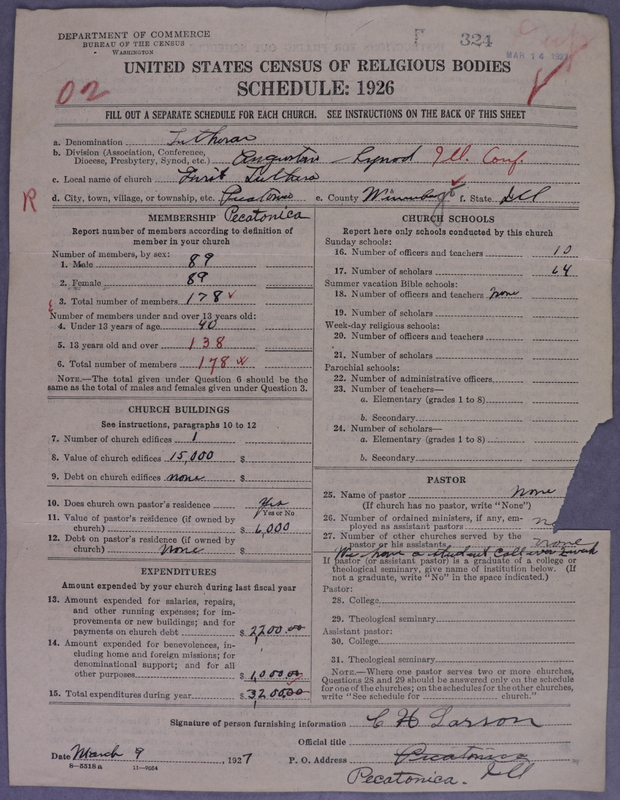 DEPARTMENT OF COMMERCE
BUREAU OF THE CENSUS
WASHINGTON
324
MAR 14 1927
UNITED STATES CENSUS OF RELIGIOUS BODIES
SCHEDULE: 1926
02
FILL OUT A SEPARATE SCHEDULE FOR EACH CHURCH. SEE INSTRUCTIONS ON THE BACK OF THIS SHEET
a. Denomination Lutheran
b. Division (Association, Conference, Diocese, Presbytery, Synod, etc.) Augustana Synod Ill. Conf.
c. Local name of church First Luthern
R
d. City, town, village, or township, etc. Pecatonica e. County Winnebago f. State Ill
Pecatonica
MEMBERSHIP
Report number of members according to definition of
member in your church
Number of members, by sex:
1. Male 89
2. Female 89
3. Total number of members 178
Number of members under and over 13 years old:
4. Under 13 years of age 40
5. 13 years old and over 138
6. Total number of members 178
NOTE.—The total given under Question 6 should be the
same as the total of males and females given under Question 3.
CHURCH BUILDINGS
See instructions, paragraphs 10 to 12
7. Number of church edifices 1
8. Value of church edifices 15,000 $
9. Debt on church edifices none $
10. Does church own pastor's residence Yes
Yes or No
11. Value of pastor's residence (if owned by
church) $ 6,000
12. Debt on pastor's residence (if owned by
church) none $
EXPENDITURES
Amount expended by your church during last fiscal year
13. Amount expended for salaries, repairs,
and other running expenses; for im-
provements or new buildings; and for
payments on church debt $ 2200.00
14. Amount expended for benevolences, in-
cluding home and foreign missions; for
denominational support; and for all
other purposes $ 1,000.00
15. Total expenditures during year $ 3200.00
CHURCH SCHOOLS
Report here only schools conducted by this church
Sunday schools:
16. Number of officers and teachers 10
17. Number of scholars 64
Summer vacation Bible schools:
18. Number of officers and teachers none
19. Number of scholars
Week-day religious schools:
20. Number of officers and teachers
21. Number of scholars
Parochial schools:
22. Number of administrative officers
23. Number of teachers—
a. Elementary (grades 1 to 8)
b. Secondary
24. Number of scholars—
a. Elementary (grades 1 to 8)
b. Secondary
PASTOR
25. Name of pastor none
(If church has no pastor, write "None")
26. Number of ordained ministers, if any, em-
ployed as assistant pastors
27. Number of other churches served by the
pastor or his assistants none
We have a student
If pastor (or assistant pastor) is a graduate of a college or
theological seminary, give name of institution below. (If
not a graduate, write "No" in the space indicated.)
Pastor:
28. College
29. Theological seminary
Assistant pastor:
30. College
31. Theological seminary
NOTE.—Where one pastor serves two or more churches,
Questions 28 and 29 should be answered only on the schedule
for one of the churches; on the schedules for the other churches,
write "See schedule for church."
Signature of person furnishing information C H Larson
Official title
Date March 9, 1927 P. O. Address Pecatonica
Pecatonica. Ill
8—5318 a 11—9054